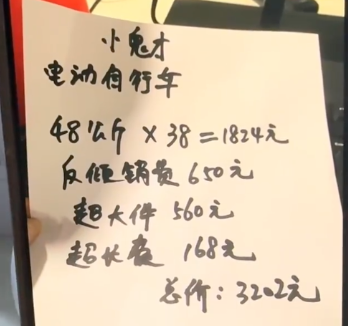 小鬼才
电动自行车
48公斤 × 38 = 1824元
反倾销费 650元
超大件 560元
超长费 168元
总价: 3202元